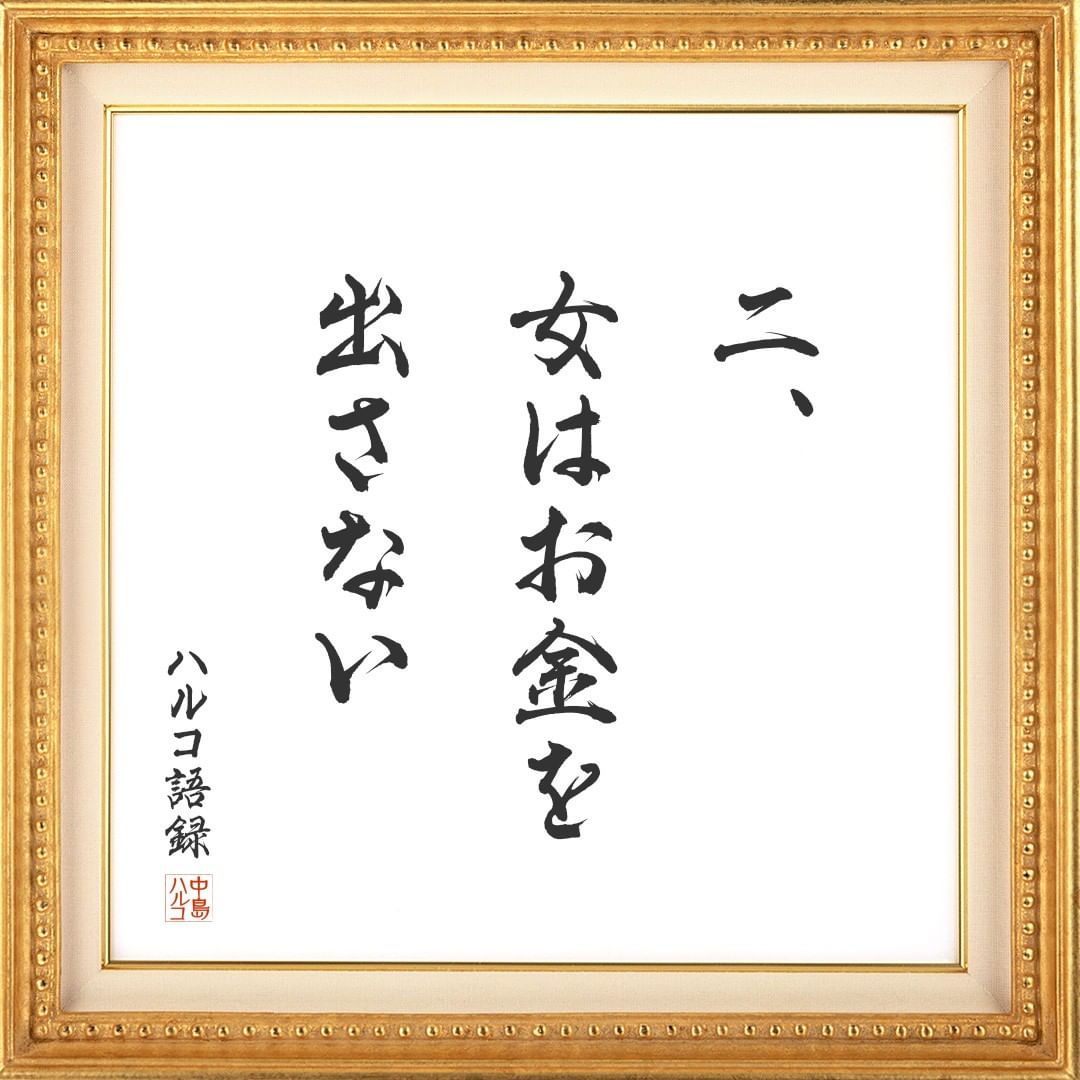 二、
女はお金を
出さない
ハルコ語録
中島
ハルコ